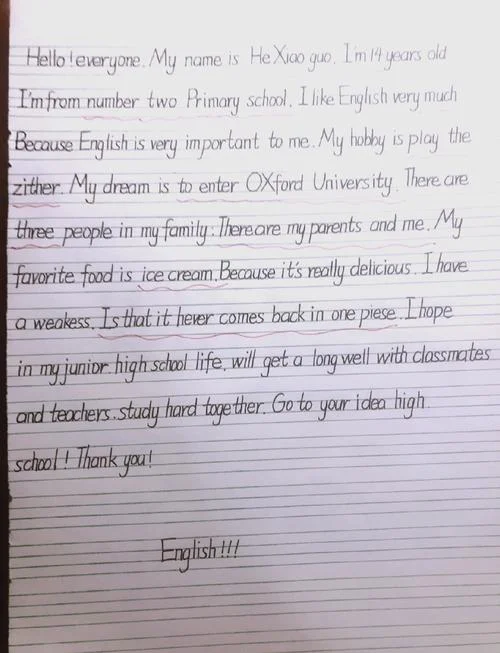 Hello! everyone. My name is He Xiao guo. I'm 14 years old
I'm from number two Primary school. I like English very much
Because English is very important to me. My hobby is play the
zither. My dream is to enter OXford University. There are
three people in my family: There are my parents and me. My
favorite food is ice cream. Because it's really delicious. I have
a weakess. Is that it hever comes back in one piese. I hope
in my junior high school life. will get a long well with classmates
and teachers. study hard together. Go to your idea high
school! Thank you!
English!!!